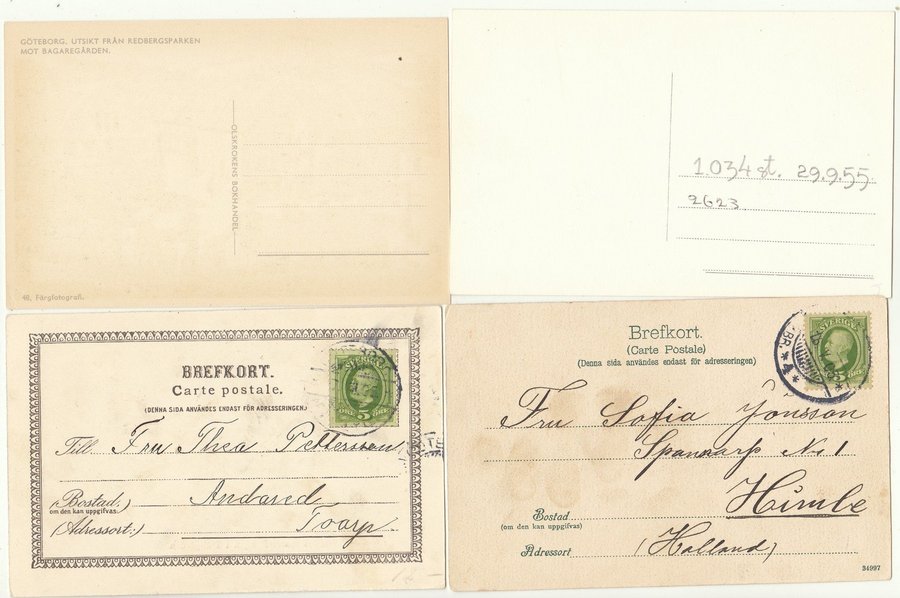 GÖTEBORG. UTSIKT FRÅN REDBERGSPARKEN
MOT BAGAREGÅRDEN.
OLSKROKENS BOKHANDEL
48, Färgfotografi.
1.034 st. 29.9.55.
2623
BREFKORT.
Carte postale.
(DENNA SIDA ANVÄNDES ENDAST FÖR ADRESSERINGEN.)
SVERIGE
5
ÖRE ÖRE
Till Fru Thea Pettersson
(Bostad.)
om den kan uppgifvas.
Andared
(Adressort.)
Toarp
Brefkort.
(Carte Postale)
(Denna sida användes endast för adresseringen)
SVERIGE
BR * 4 *
Fru Sofia Jonsson
Spannarp No 1
Himle
Bostad
(om den kan uppgifvas)
Adressort
(Halland)
34997